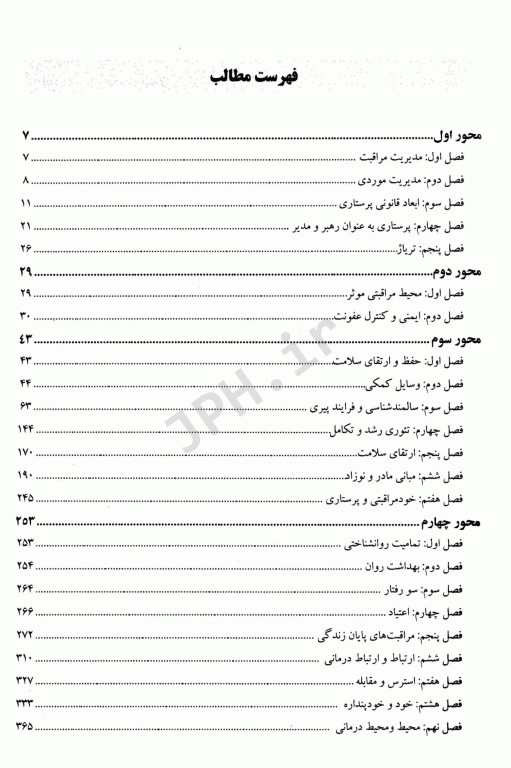 فهرست مطالب
محور اول ۷
فصل اول: مدیریت مراقبت ۷
فصل دوم: مدیریت موردی ۸
فصل سوم: ابعاد قانونی پرستاری ۱۱
فصل چهارم: پرستاری به عنوان رهبر و مدیر ۲۱
فصل پنجم: تریاژ ۲۶
محور دوم ۲۹
فصل اول: محیط مراقبتی موثر ۲۹
فصل دوم: ایمنی و کنترل عفونت ۳۰
محور سوم ۴۳
فصل اول: حفظ و ارتقای سلامت ۴۳
فصل دوم: وسایل کمکی ۴۴
فصل سوم: سالمندشناسی و فرایند پیری ۶۳
فصل چهارم: تئوری رشد و تکامل ۱۴۴
فصل پنجم: ارتقای سلامت ۱۷۰
فصل ششم: مبانی مادر و نوزاد ۱۹۰
فصل هفتم: خودمراقبتی و پرستاری ۲۴۵
محور چهارم ۲۵۳
فصل اول: تمامیت روانشناختی ۲۵۳
فصل دوم: بهداشت روان ۲۵۴
فصل سوم: سو رفتار ۲۶۴
فصل چهارم: اعتیاد ۲۶۶
فصل پنجم: مراقبت‌های پایان زندگی ۲۷۲
فصل ششم: ارتباط و ارتباط درمانی ۳۱۰
فصل هفتم: استرس و مقابله ۳۲۷
فصل هشتم: خود و خودپنداره ۳۳۳
فصل نهم: محیط ومحیط درمانی ۳۶۵
JPH.ir